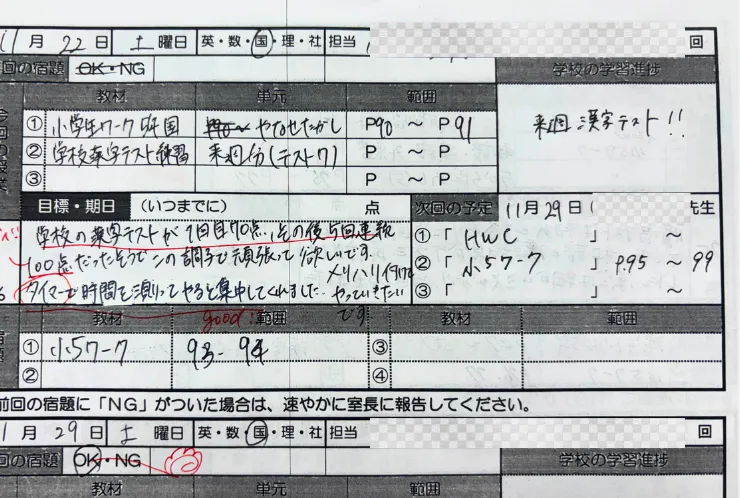 11月 22日 土 曜日 英・数・国・理・社 担当 回
回の宿題 OK・NG 学校の学習進捗
教材 単元 範囲
① 小学生ワーク 5年国 やなせたかし P90 ～ P91
来週 漢字テスト!!
② 学校漢字テスト練習 来週分(テスト7) P ～ P
③ P ～ P
目標・期日 (いつまでに) 点 次回の予定 11月29日( 先生
学校の漢字テストが1回目70点、その後5回連続
①「 HWC 」 ～
100点だったそうでこの調子で頑張って欲しいです。
②「 小5ワーク 」 P.95 ～ 99
タイマーで時間を測ってやると集中してくれました。メリハリ付けてやっていきたいです
③「 」 ～
good!
教材 範囲 教材 範囲
① 小5ワーク 93-94 ③
② ④
前回の宿題に「NG」がついた場合は、速やかに室長に報告してください。
1月 29日 土 曜日 英・数・国・理・社 担当 回
回の宿題 OK・NG 学校の学習進捗
教材 単元 範囲